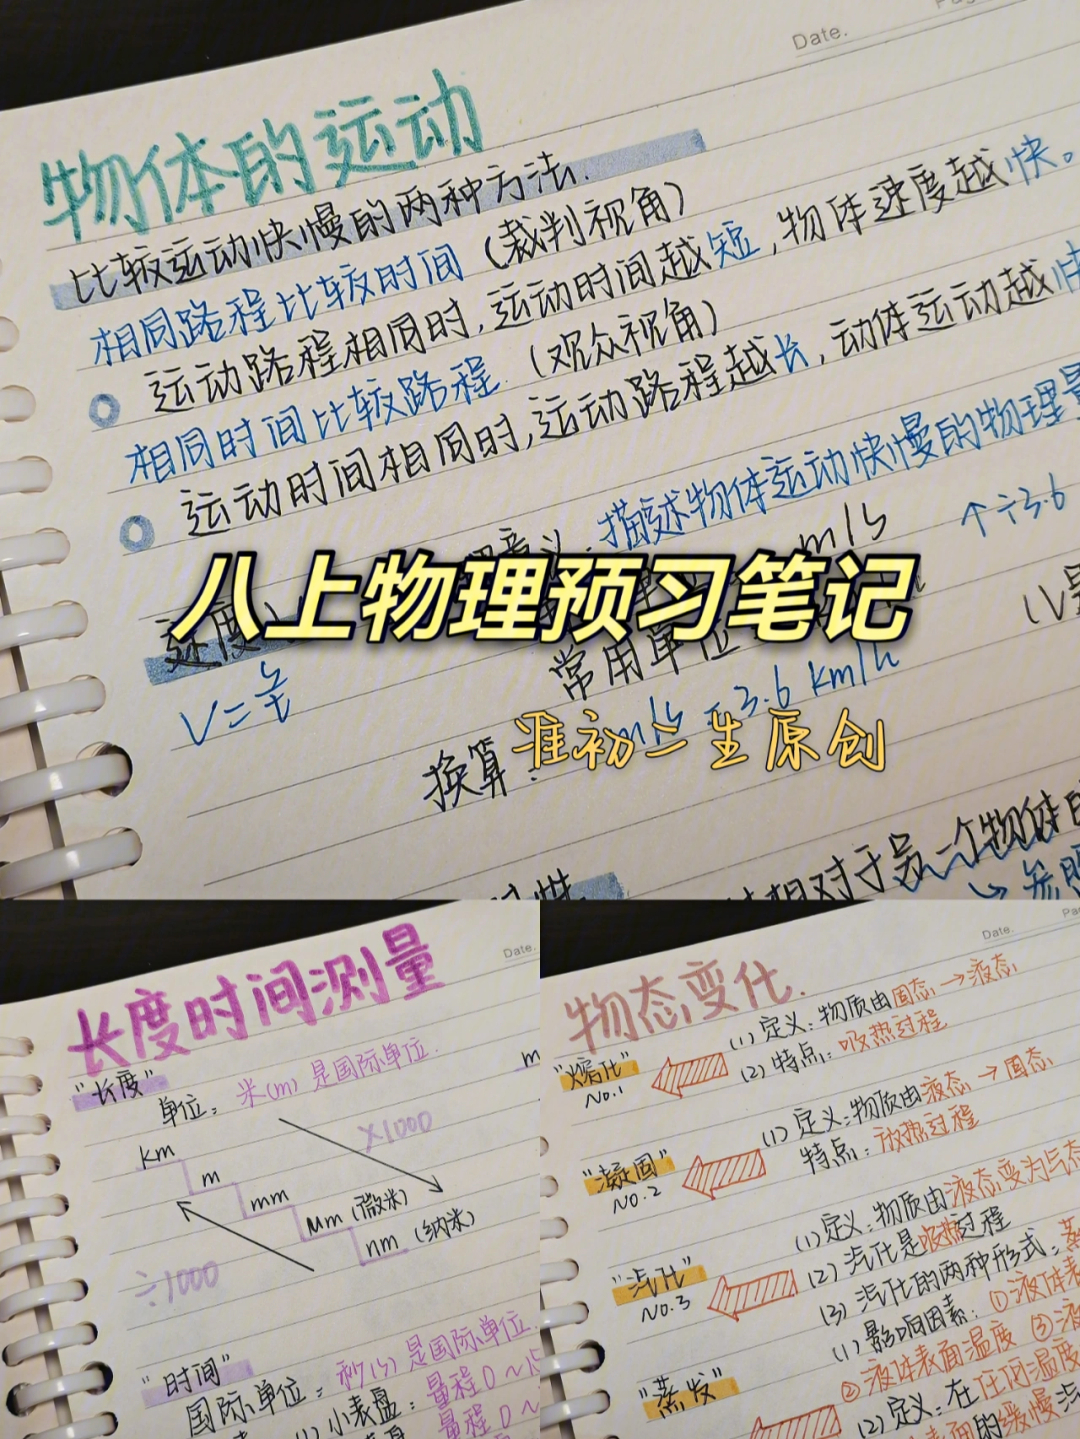 Date.
物体的运动
比较运动快慢的两种方法.
相同路程比较时间（裁判视角）
运动路程相同时,运动时间越短,物体速度越快。
相同时间比较路程.（观众视角）
运动时间相同时,运动路程越长,动体运动越快
描述物体运动快慢的物理量
m/s
↑÷3.6
八上物理预习笔记
速度
常用单位
V=s/t
换算：
m/s = 3.6 km/h
准初二生原创
相对于另一个物体的
Date.
长度时间测量
"长度"
单位：米(m)是国际单位.
×1000
km
m
mm
μm (微米)
nm (纳米)
÷1000
"时间"
国际单位：秒(s)是国际单位.
小表盘：量程0~15
量程0~
Date.
物态变化.
"熔化"
No.1
(1)定义：物质由固态→液态
(2)特点：吸热过程
"凝固"
NO.2
(1)定义：物质由液态→固态
特点：放热过程
"汽化"
NO.3
(1)定义：物质由液态变为气态
(2)汽化是吸热过程
(3)汽化的两种形式：蒸
"蒸发"
(1)影响因素：①液体表
②液体表面温度 ③液
(2)定义：在任何温度
表面的缓慢汽